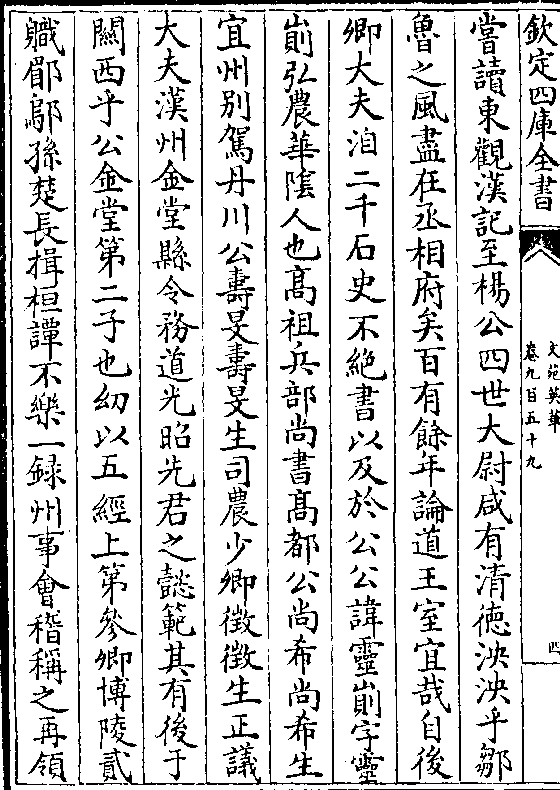 欽定四庫全書
文苑英華
卷九百五十九
四
嘗讀東觀漢記至楊公四世大尉咸有清徳泱泱乎鄒
魯之風盡在丞相府矣百有餘年論道王室宜哉自後
卿大夫洎二千石史不絶書以及於公公諱靈崱字靈
崱弘農華隂人也髙祖兵部尚書髙都公尚希尚希生
宜州别駕丹川公壽旻壽旻生司農少卿徴徴生正議
大夫漢州金堂縣令務道光昭先君之懿範其有後于
闗西乎公金堂第二子也幼以五經上第參卿博陵貳
職郿鄔孫楚長揖桓譚不樂一録州事會稽稱之再領